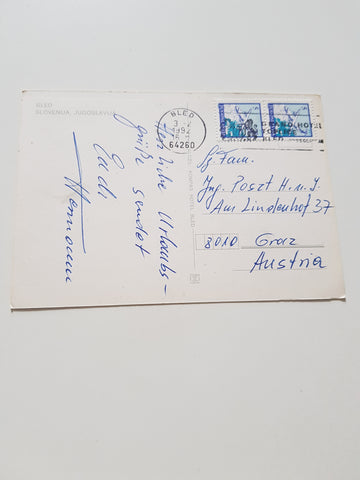 BLED
SLOVENIJA, JUGOSLAVIJA
BLED
1992
64260
BLED
Herzliche Urlaubs-
grüße sendet
Euch
Hermann
Fam.
Ing. Poszt H. u. I.
Am Lindenhof 37
8010 Graz
Austria